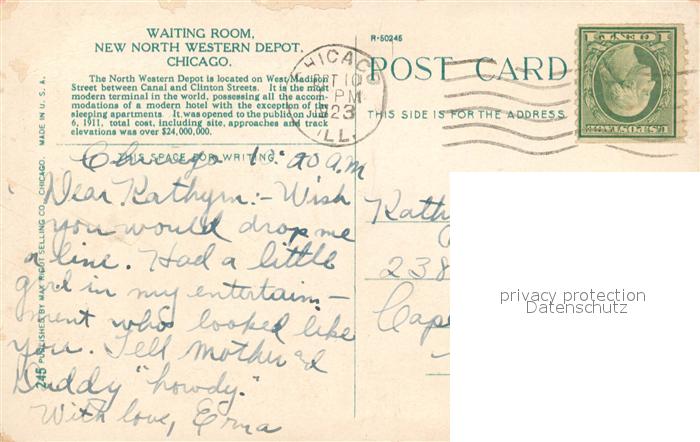 WAITING ROOM,
NEW NORTH WESTERN DEPOT,
CHICAGO.
The North Western Depot is located on West Madison
Street between Canal and Clinton Streets. It is the most
modern terminal in the world, possessing all the accom-
modations of a modern hotel with the exception of the
sleeping apartments. It was opened to the public on June
6, 1911, total cost, including site, approaches and track
elevations was over $24,000,000.
THIS SPACE FOR WRITING.
Chicago 10:20 A.M
Dear Kathryn:- Wish
you would drop me
a line. Had a little
girl in my entertain-
ment who looked like
you. Tell mother &
Daddy "howdy."
With love, Erma
245 PUBLISHED BY MAX RIGOT SELLING CO., CHICAGO. MADE IN U. S. A.
R-50245
POST CARD
THIS SIDE IS FOR THE ADDRESS
CHICAGO
OCT 10
PM
23
ILL.
1 CENT 1
U.S. POSTAGE
Kathy
238
Cape
privacy protection
Datenschutz